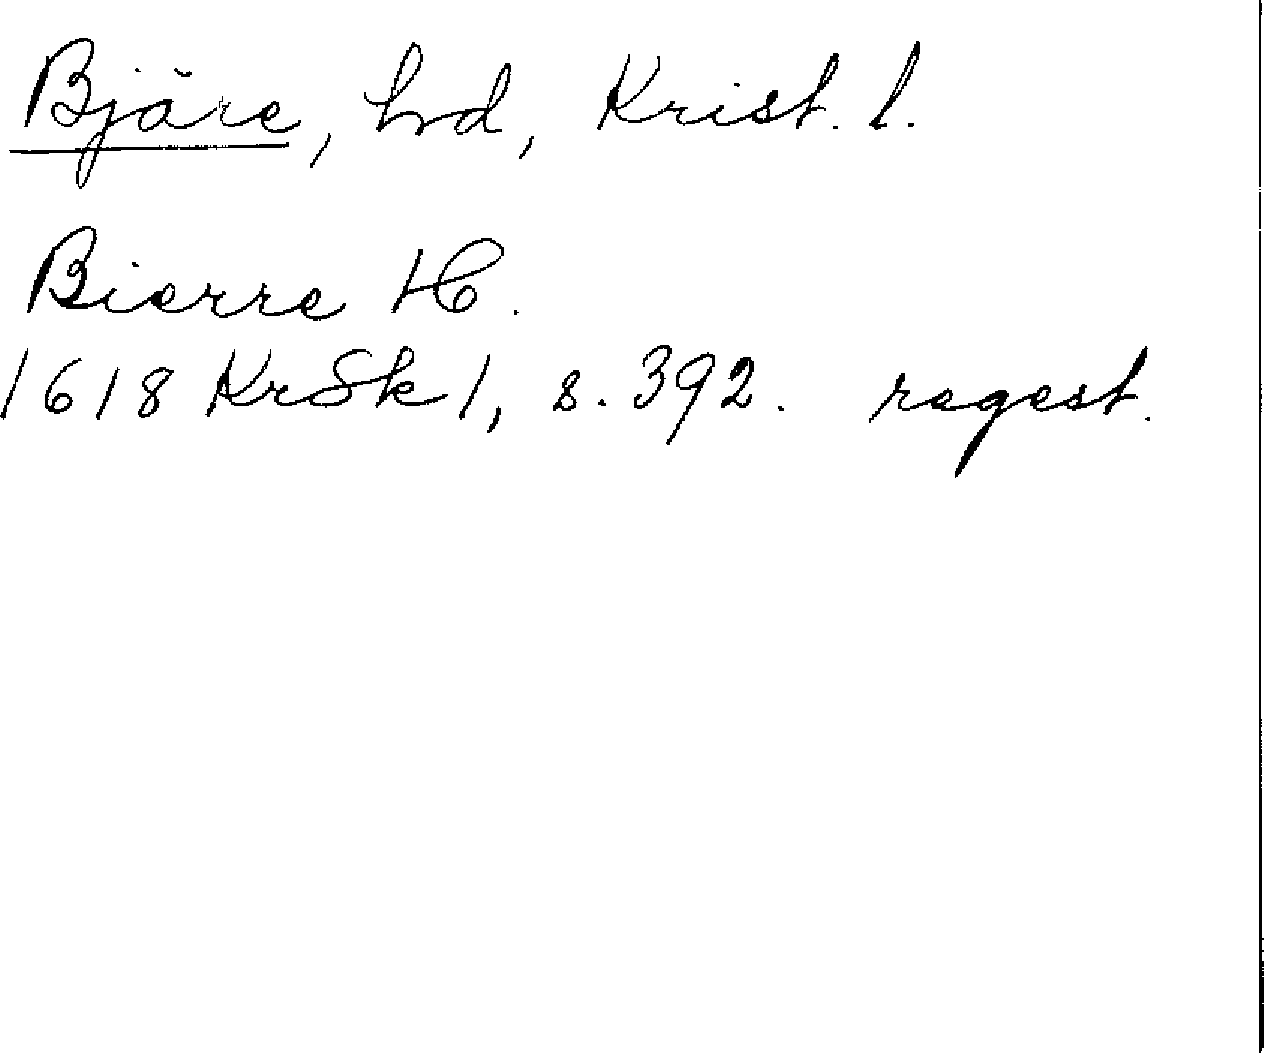 Bjäre, hd, Krist. l.
Bierre H.
1618 KrSk 1, s. 392. regest.